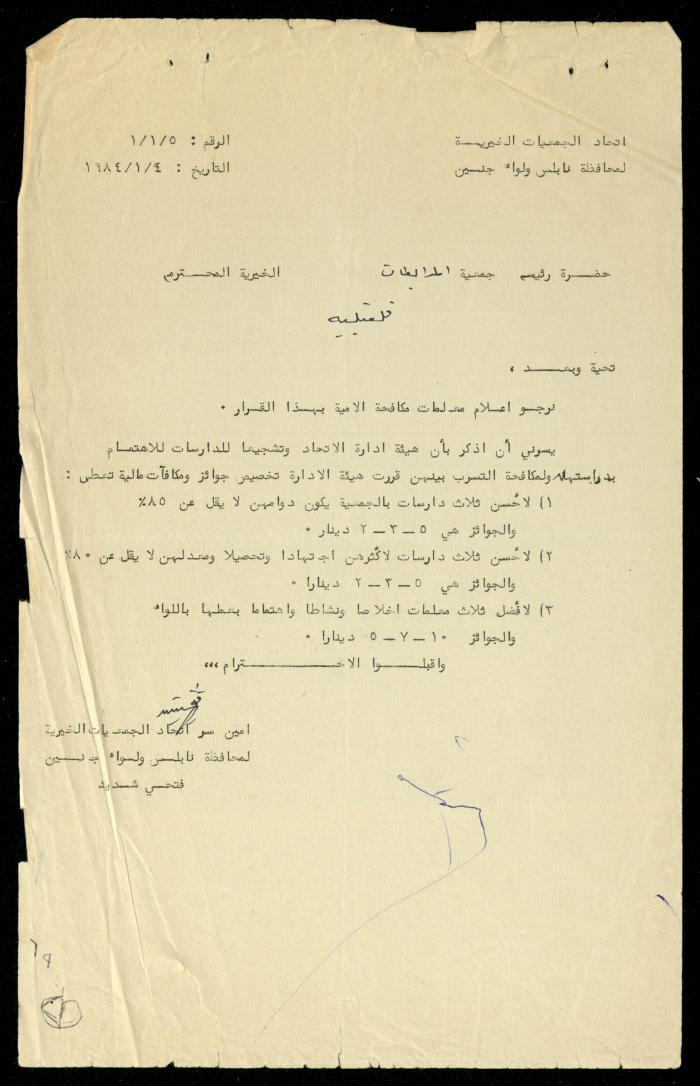 اتحاد الجمعيات الخيريـــة
لمحافظة نابلس ولواء جنـسين
الرقم : ١/١/٥
التاريخ : ١٩٨٤/١/٤
حضـــرة رئيسه جمعية المرابطات الخيرية المحـــترم
قلقيلية
تحية وبعـــــد ،
نرجـــو اعـلام معـلمات مكافحة الامية بـهـذا القـرار ٠
يسرني أن اذكر بأن هيئة ادارة الاتحاد وتشجيعا للدارسات للاهتمـــام
بدراستهن ولمكافحة التسرب بينهن قررت هيئة الادارة تخصيص جوائز ومكافآت مالية تعطى :
١) لأحسن ثلاث دارسات بالجمعية يكون دوامهن لا يقل عن ٨٥٪
والجوائز هي ٥ – ٣ – ٢ دينار ٠
٢) لأحسن ثلاث دارسات لأكثرهن اجتهادا وتحصيلا ومعدلهن لا يقل عن ٨٠٪
والجوائز هي ٥ – ٣ – ٢ دينارا ٠
٣) لأفضل ثلاث معلمات اخلاصا ونشاطا واهتماما بعملها باللواء
والجوائز ١٠ – ٧ – ٥ دينارا ٠
واقبلـــوا الاحـــــترام ،،،
امين سر اتحاد الجمعيات الخيرية
لمحافظة نابلـس ولـواء جنـــسين
فتحـي شـديد